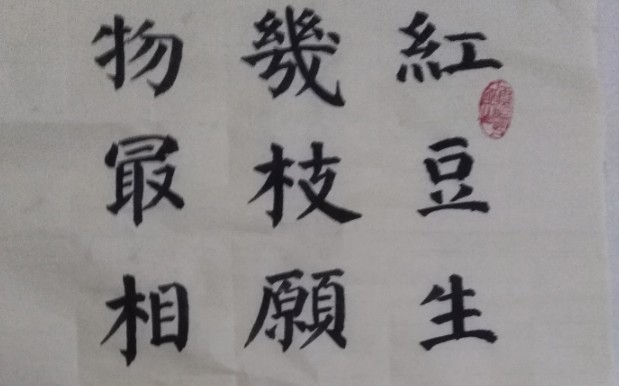 紅豆生
幾枝願
物最相